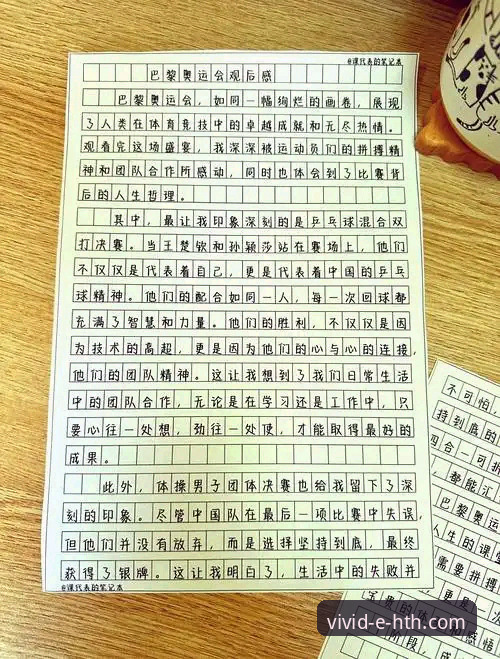 @课代表的笔记本
巴黎奥运会观后感
巴黎奥运会，如同一幅绚烂的画卷，展现
了人类在体育竞技中的卓越成就和无尽热情。
观看完这场盛宴，我深深被运动员们的拼搏精
神和团队合作所感动，同时也体会到了比赛背
后的人生哲理。
其中，最让我印象深刻的是乒乓球混合双
打决赛。当王楚钦和孙颖莎站在赛场上，他们
不仅仅是代表着自己，更是代表着中国的乒乓
球精神。他们的配合如同一人，每一次回球都
充满了智慧和力量。他们的胜利，不仅仅是因
为技术的高超，更是因为他们的心与心的连接，
他们的团队精神。这让我想到了我们日常生活
中的团队合作，无论是在学习还是工作中，只
要心往一处想，劲往一处使，才能取得最好的
成果。
此外，体操男子团体决赛也给我留下了深
刻的印象。尽管中国队在最后一项比赛中失误，
但他们并没有放弃，而是选择坚持到底，最终
获得了银牌。这让我明白了，生活中的失败并
@课代表的笔记本
不可怕
持到底的
四合一可折
，都能汇
巴黎奥
人生的课堂
需要拼搏
，更是一次
宝贵的
和感悟
阶段，成
vivid-e-hth.com